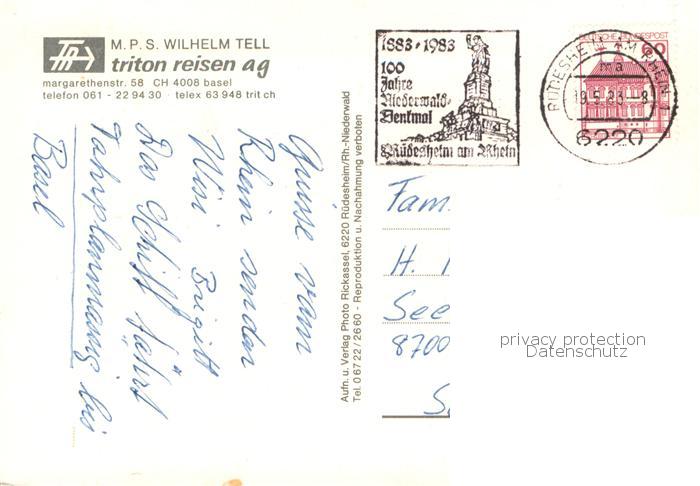 M.P.S. WILHELM TELL
triton reisen ag
margarethenstr. 58 CH 4008 basel
telefon 061 - 22 94 30 · telex 63 948 trit ch
1883·1983
100
Jahre
Niederwald-
Denkmal
Rüdesheim am Rhein
DEUTSCHE BUNDESPOST
60
RÜDESHEIM AM RHEIN 1
ma
19.5.83 - 8
6220
Grüsse vom
Rhein senden
Wisi Brigitt
Das Schiff fährt
Fahrplanmässig bis
Basel
Aufn. u. Verlag Photo Rickassel, 6220 Rüdesheim/Rh.-Niederwald
Tel. 0 67 22 / 26 60 - Reproduktion u. Nachahmung verboten
Fam.
H.
See
8700
privacy protection
Datenschutz